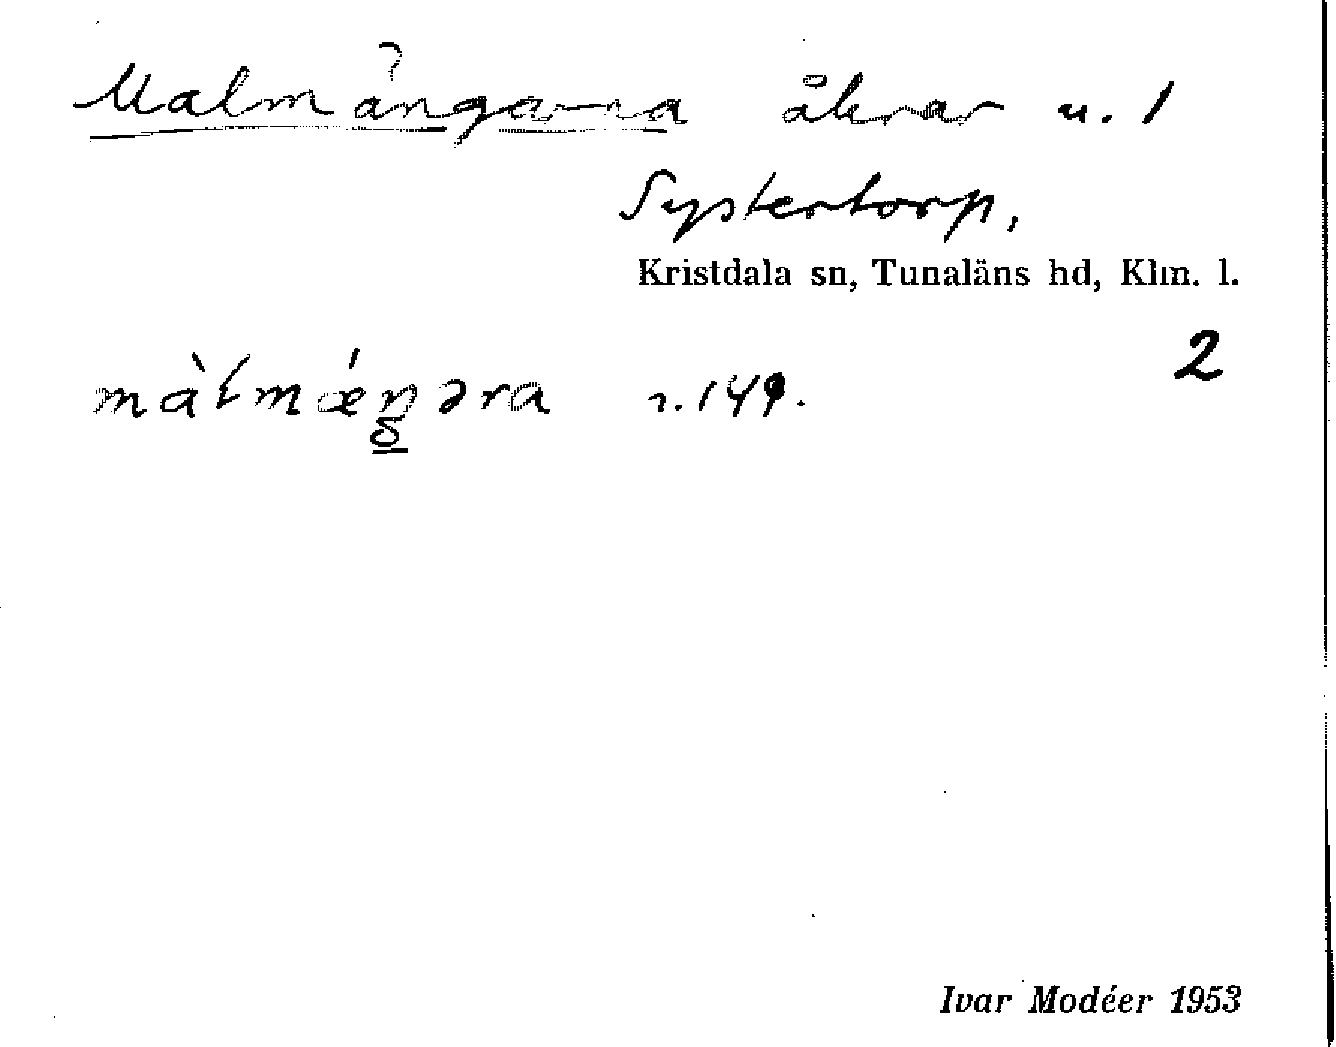 Malmängarna åkrar u. 1
Systertorp,
Kristdala sn, Tunaläns hd, Klm. l.
2
màłmǽŋəra r. 149.
Ivar Modéer 1953